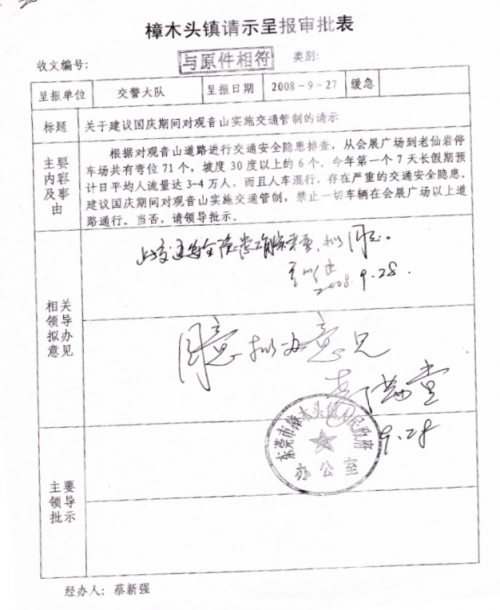 樟木头镇请示呈报审批表
收文编号：
与原件相符
类别：
呈报单位
交警大队
呈报日期
2008-9-27
缓急
标题
关于建议国庆期间对观音山实施交通管制的请示
主要
内容
及事
由
根据对观音山道路进行交通安全隐患排查，从会展广场到老仙岩停
车场共有弯位71个，坡度30度以上的6个。今年第一个7天长假期预
计日平均人流量达3-4万人，而且人车混行，存在严重的交通安全隐患。
建议国庆期间对观音山实施交通管制，禁止一切车辆在会展广场以上道
路通行。当否，请领导批示。
相关
领导
拟办
意见
交通安全隐患 拟同意。
2008.9.28.
同意拟办意见
9.28
东莞市樟木头镇人民政府
办公室
主要
领导
批示
经办人：蔡新强